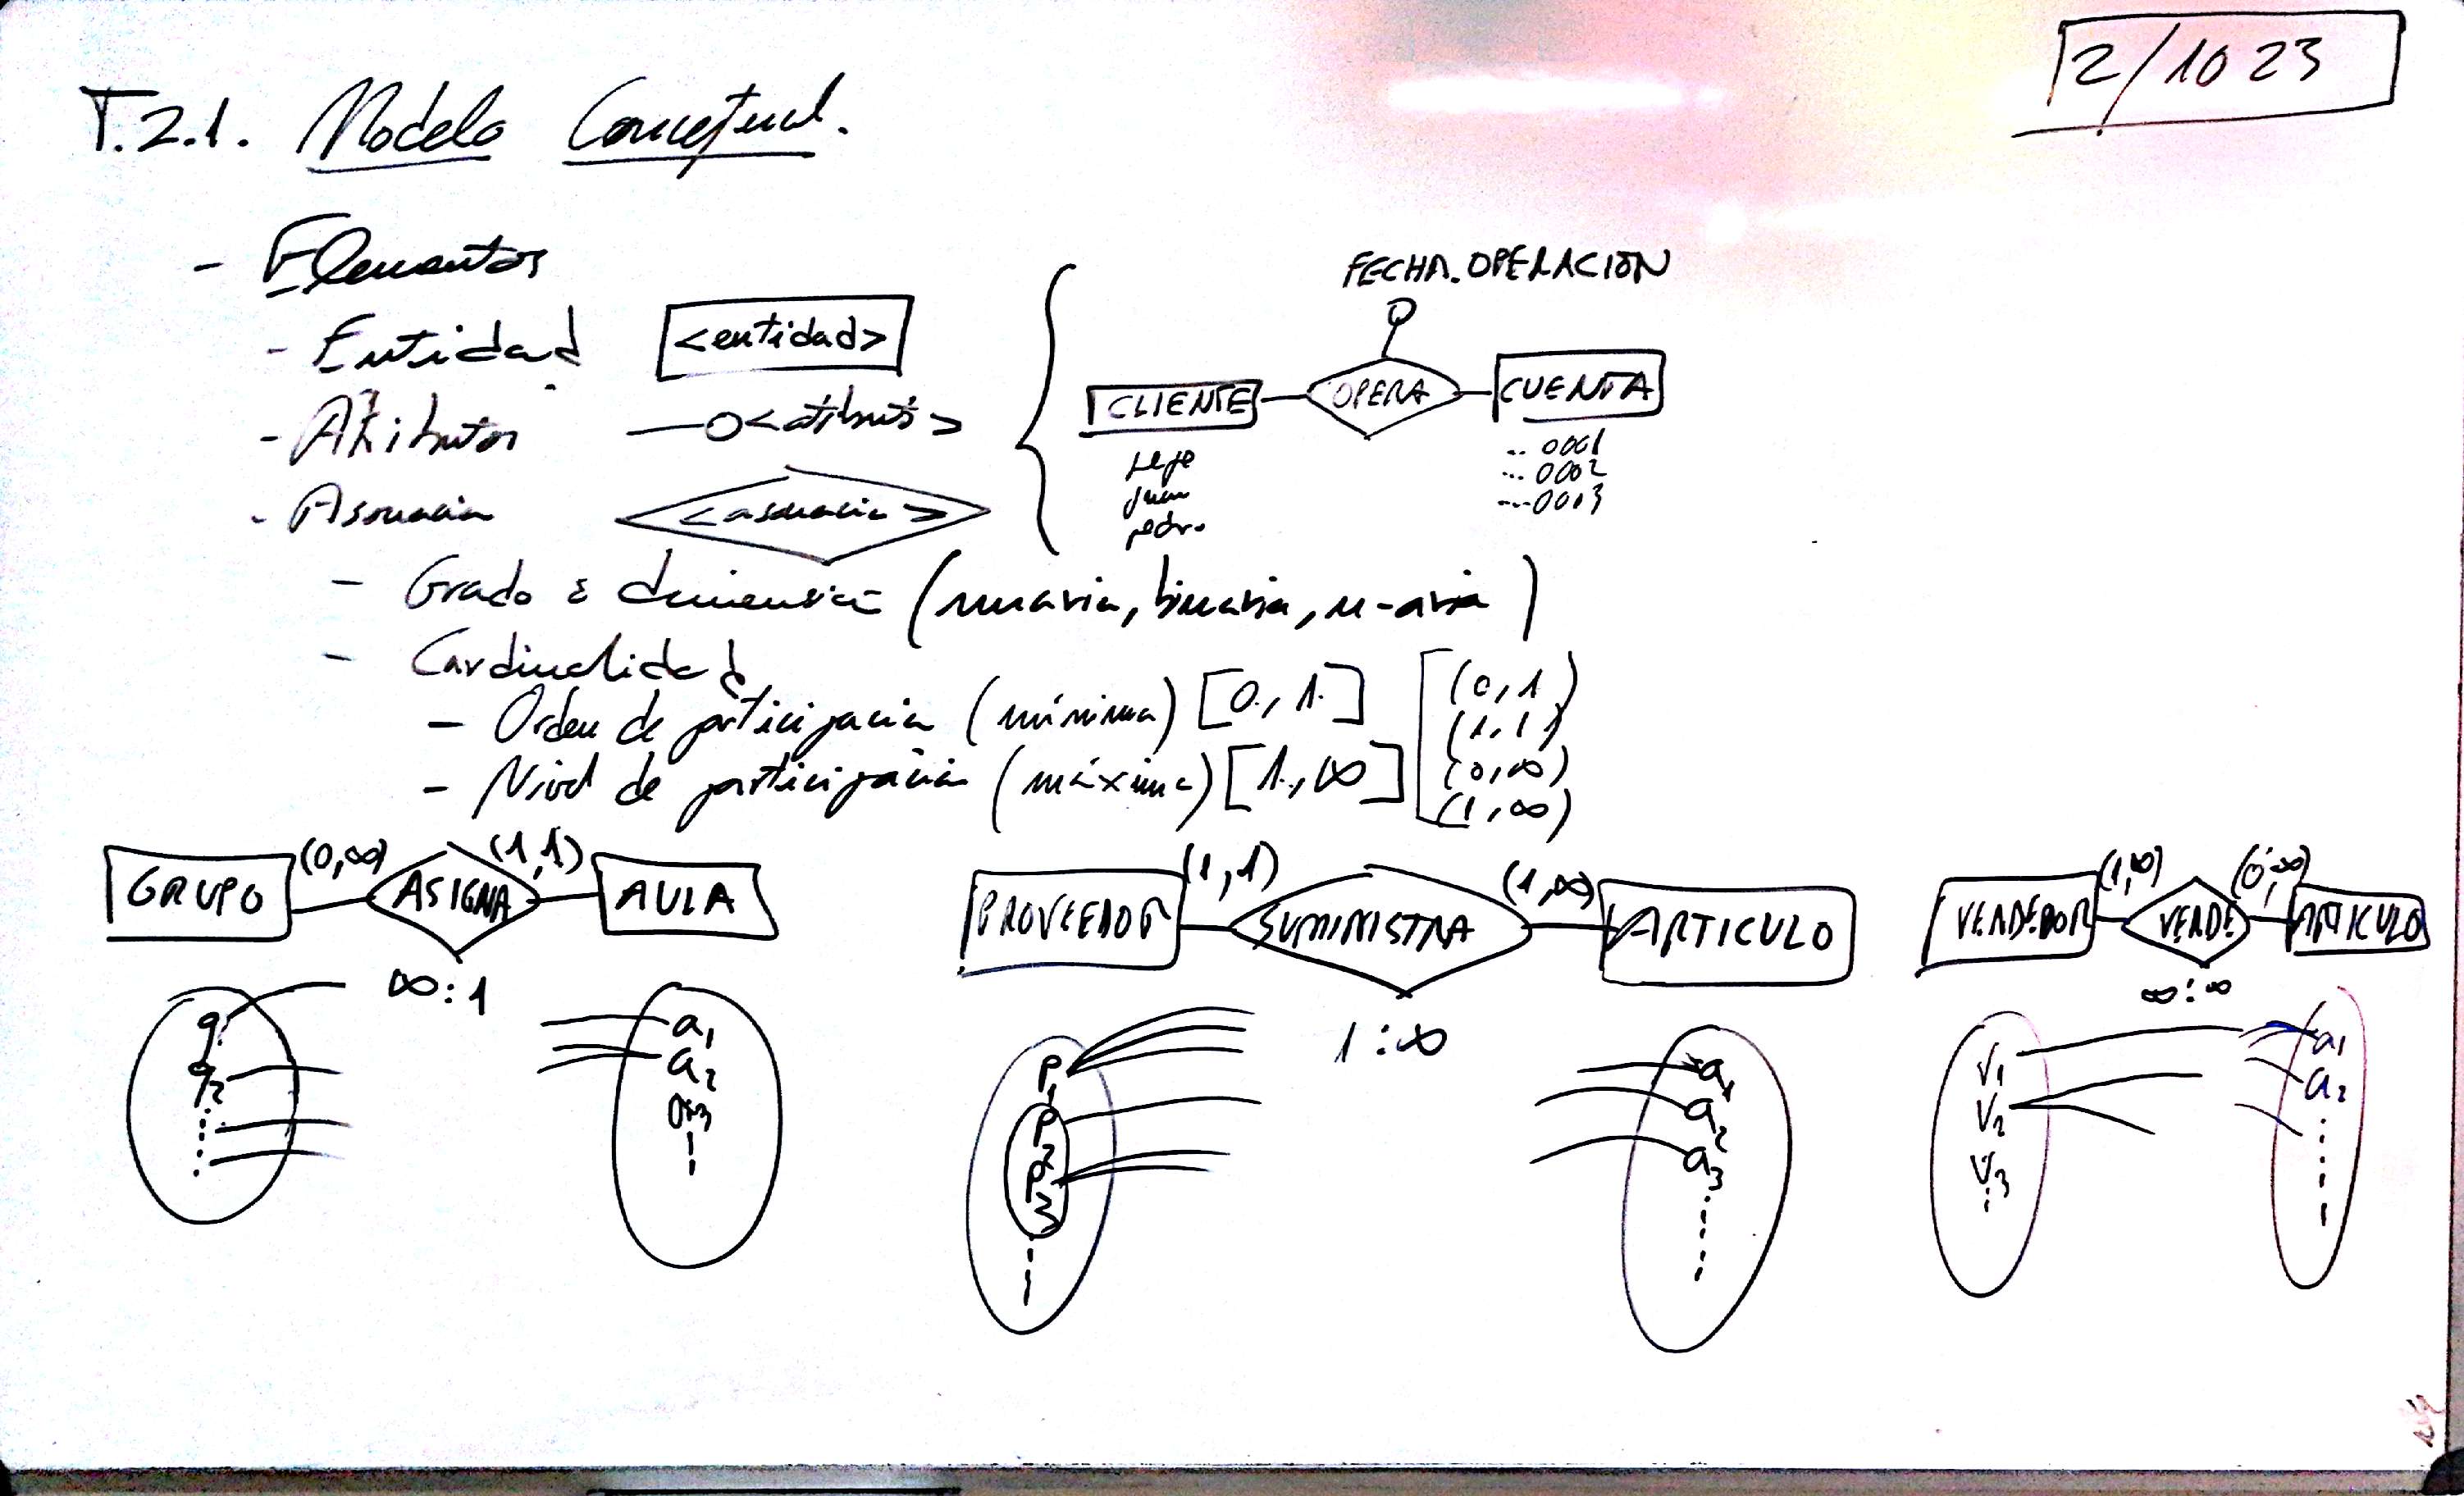 2/10 23
T.2.1. Modelo Conceptual.
- Elementos
- Entidad <entidad>
- Atributos <atributo>
- Asociación <asociación>
FECHA-OPERACION
CLIENTE OPERA CUENTA
pepe
juan
pedro
... 0001
... 0002
... 0013
- Grado o dimensión (unaria, binaria, n-aria)
- Cardinalidad
- Orden de participación (mínima) [0, 1]
- Nivel de participación (máxima) [1, ∞]
(0,1)
(1,1)
(0,∞)
(1,∞)
GRUPO (0,∞) ASIGNA (1,1) AULA
∞:1
g1
g2
a1
a2
a3
PROVEEDOR (1,1) SUMINISTRA (1,∞) ARTICULO
1:∞
P1
P2
P3
a1
a2
a3
VENDEDOR (1,∞) VENDE (0,∞) ARTICULO
∞:∞
V1
V2
V3
a1
a2